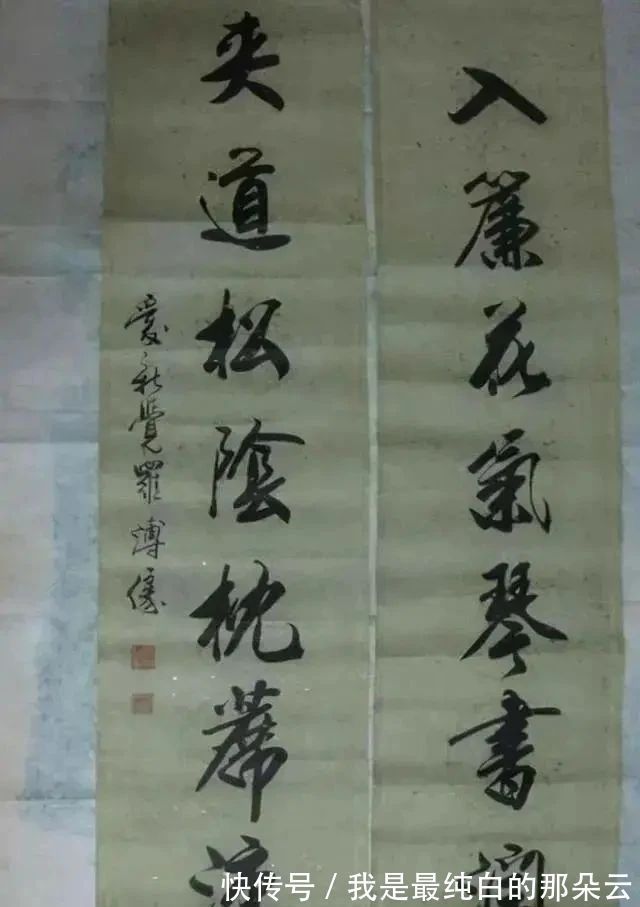 入簾花氣琴書潤
夾道松陰枕蓆涼
愛新覺羅溥儀
快传号/我是最纯白的那朵云